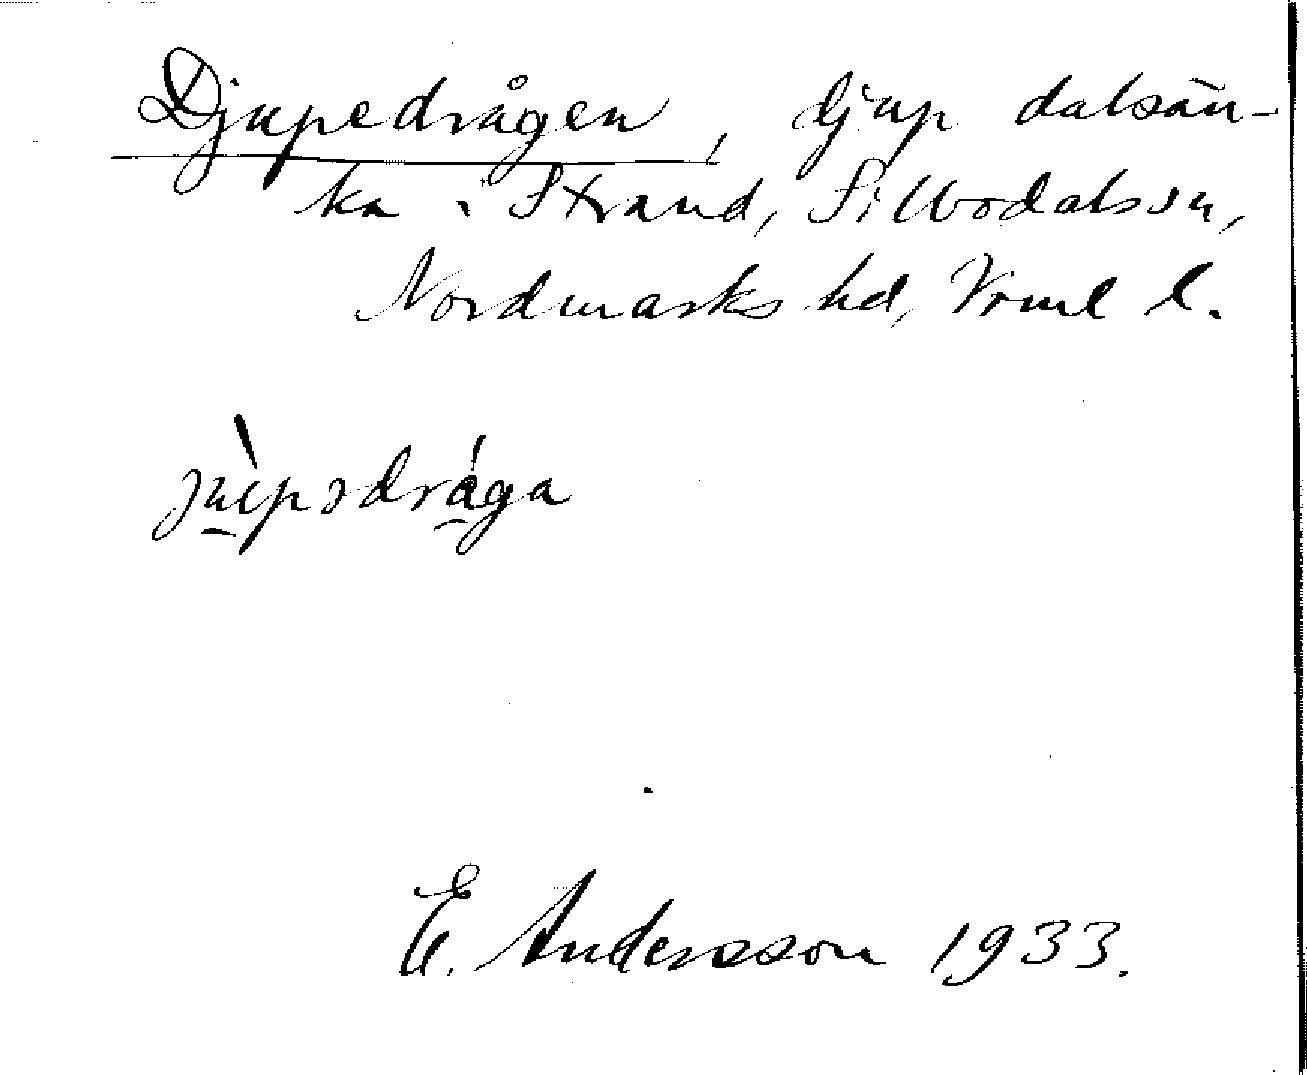 Djupedrågen, djup dalsän-
ka i Strand, Sillbodals sn,
Nordmarks hd, Vrml l.
jùpədrága
E. Andersson 1933.